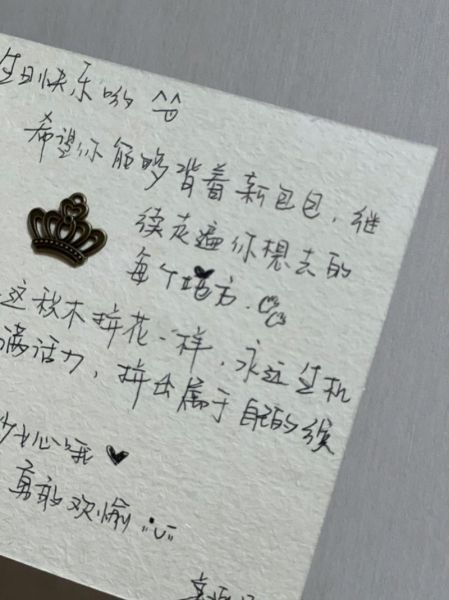 生日快乐哟
希望你能够背着新包包，继
续走遍你想去的
每个地方.
这秋木拼花一样，永远生机
满活力，拼出属于自己的缤
心哦
勇敢欢愉